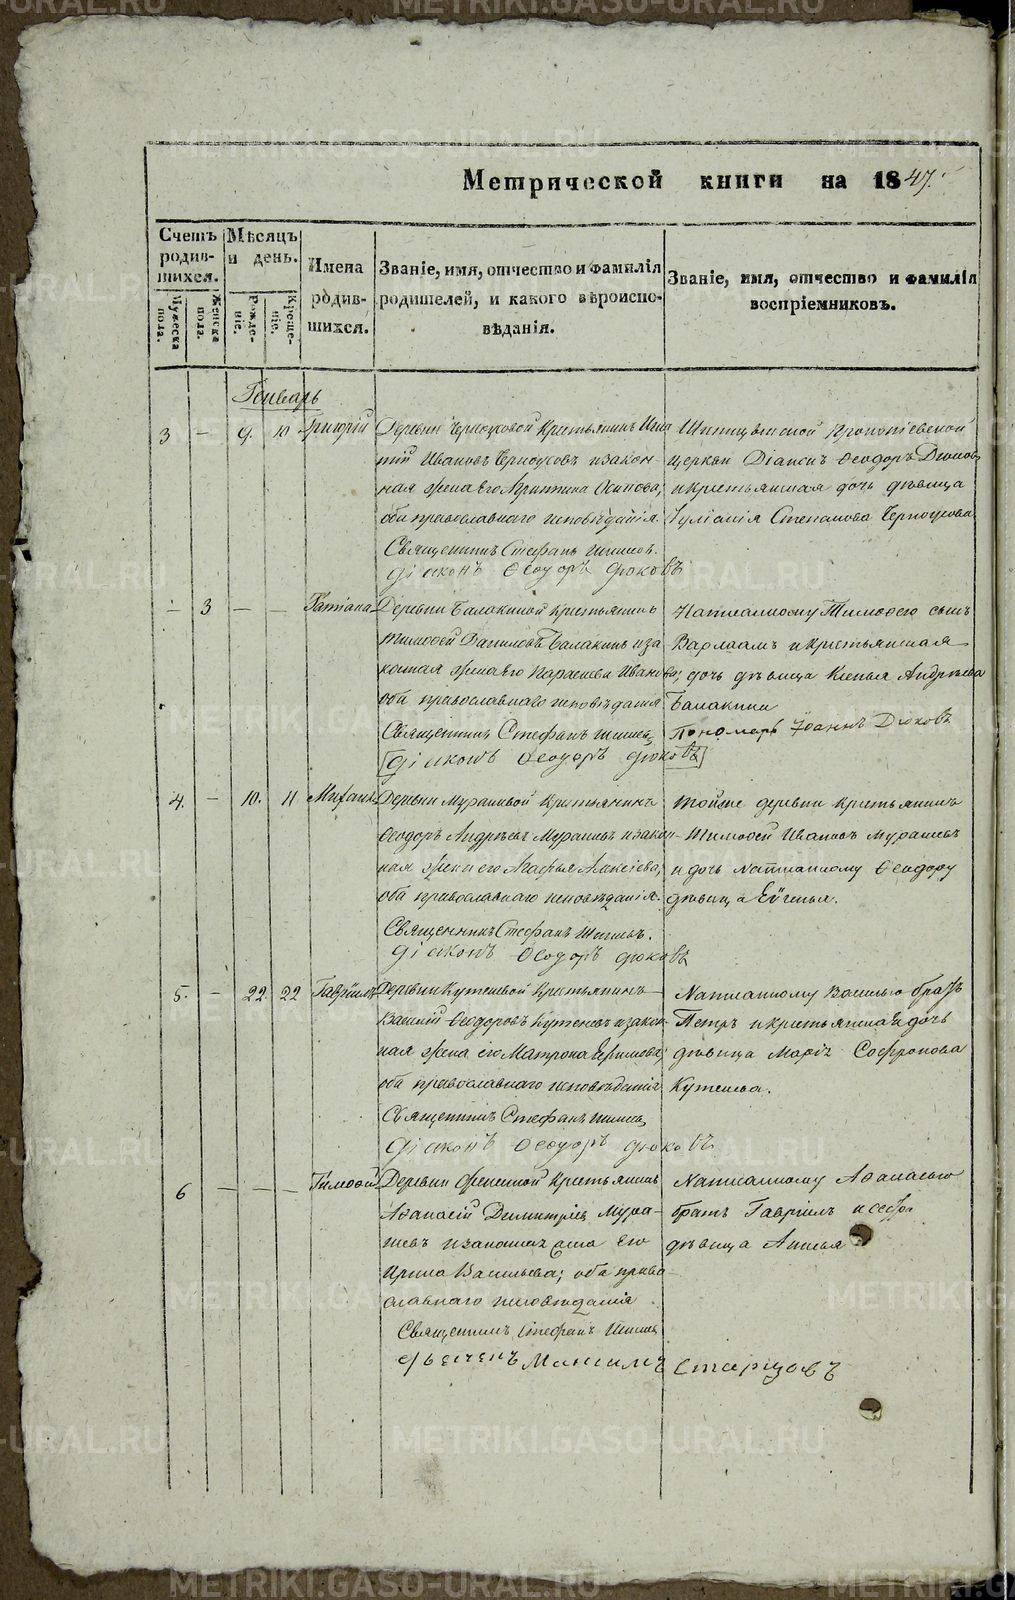 Метрической книги на 1847.
Счетъ родив-шихся.
Мужеска пола.
Женска пола.
Мѣсяцъ и день.
Рожде-ніе.
Креще-ніе.
Имена родив-шихся.
Званіе, имя, отчество и фамилія родителей, и какого вѣроиспо-вѣданія.
Званіе, имя, отчество и фамилія воспріемниковъ.
Генварь
3 — 9. 10 Григорій
Деревни Черноусовой Крестьянинъ Игна
тій Ивановъ Черноусовъ и закон-
ная жена его Агрипина Осипова;
оба православнаго исповѣданія.
Священникъ Стефанъ
діаконъ Ѳеодоръ Дюковъ
церкви Діаконъ Ѳеодоръ Дюковъ
и крестьянская дочь дѣвица
Іуліанія Степанова Черноусова.
— 3 — — Татіана
Деревни Балакиной Крестьянинъ
Тимоѳей Даниловъ Балакинъ и за
конная жена его Параскева Иванова;
оба православнаго исповѣданія
Священникъ Стефанъ
діаконъ Ѳеодоръ Дюковъ
Написанному Тимоѳею сынъ
Варлаамъ и крестьянская
дочь дѣвица Ксенья Андрѣева
Балакины
Пономарь Іоаннъ Дюковъ
4. — 10. 11 Михаилъ
Деревни Мурашевой Крестьянинъ
Ѳеодоръ Андрѣевъ Мурашевъ и закон-
ная жена его Агафья Алексіева;
оба православнаго исповѣданія.
Священникъ Стефанъ
діаконъ Ѳеодоръ Дюковъ
Той же деревни крестьянинъ
Тимоѳей Ивановъ Мурашевъ
и дочь написанному Ѳеодору
дѣвица Евгенья.
5. — 22 22 Гавріилъ
Деревни Кутеневой Крестьянинъ
Василій Ѳеодоровъ Кутеневъ и закон
ная жена его Матрона Ефимова;
оба православнаго исповѣданія
Священникъ Стефанъ
діаконъ Ѳеодоръ Дюковъ
Написанному Василью братъ
Петръ и крестьянская дочь
дѣвица Марія Софронова
Кутенева.
6 — — — Тимоѳей
Деревни Крестьянинъ
Аѳанасій Димитріевъ Мура-
шевъ и законная жена его
Ирина Васильева; оба право-
славнаго исповѣданія
Священникъ Стефанъ
Дьячекъ Максимъ Старцовъ
Написанному Аѳанасью
братъ Гавріилъ и сестра
дѣвица
METRIKI.GASO-URAL.RU